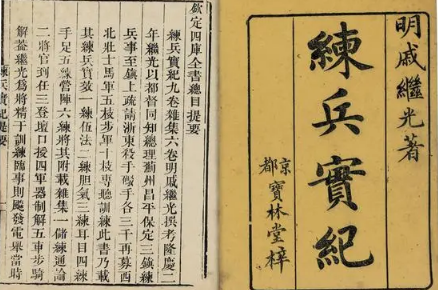 明戚繼光著
練兵實紀
京都寶林堂梓
欽定四庫全書總目提要
練兵實紀九卷雜集六卷明戚繼光撰考隆慶二
年繼光以都督同知總理薊州昌平保定三鎮練
兵事至鎮上疏請浙東殺手礮手各三千再募西
北壯士馬軍五枝步軍十枝專聽訓練此書乃載
其練兵實效一練伍法二練膽氣三練耳目四練
手足五練營陣六練將其附載雜集一儲練通論
二將官到任三登壇口授四軍器制解五車步騎
解蓋繼光為將精于訓練臨事則飈發電舉當時
練兵實紀提要